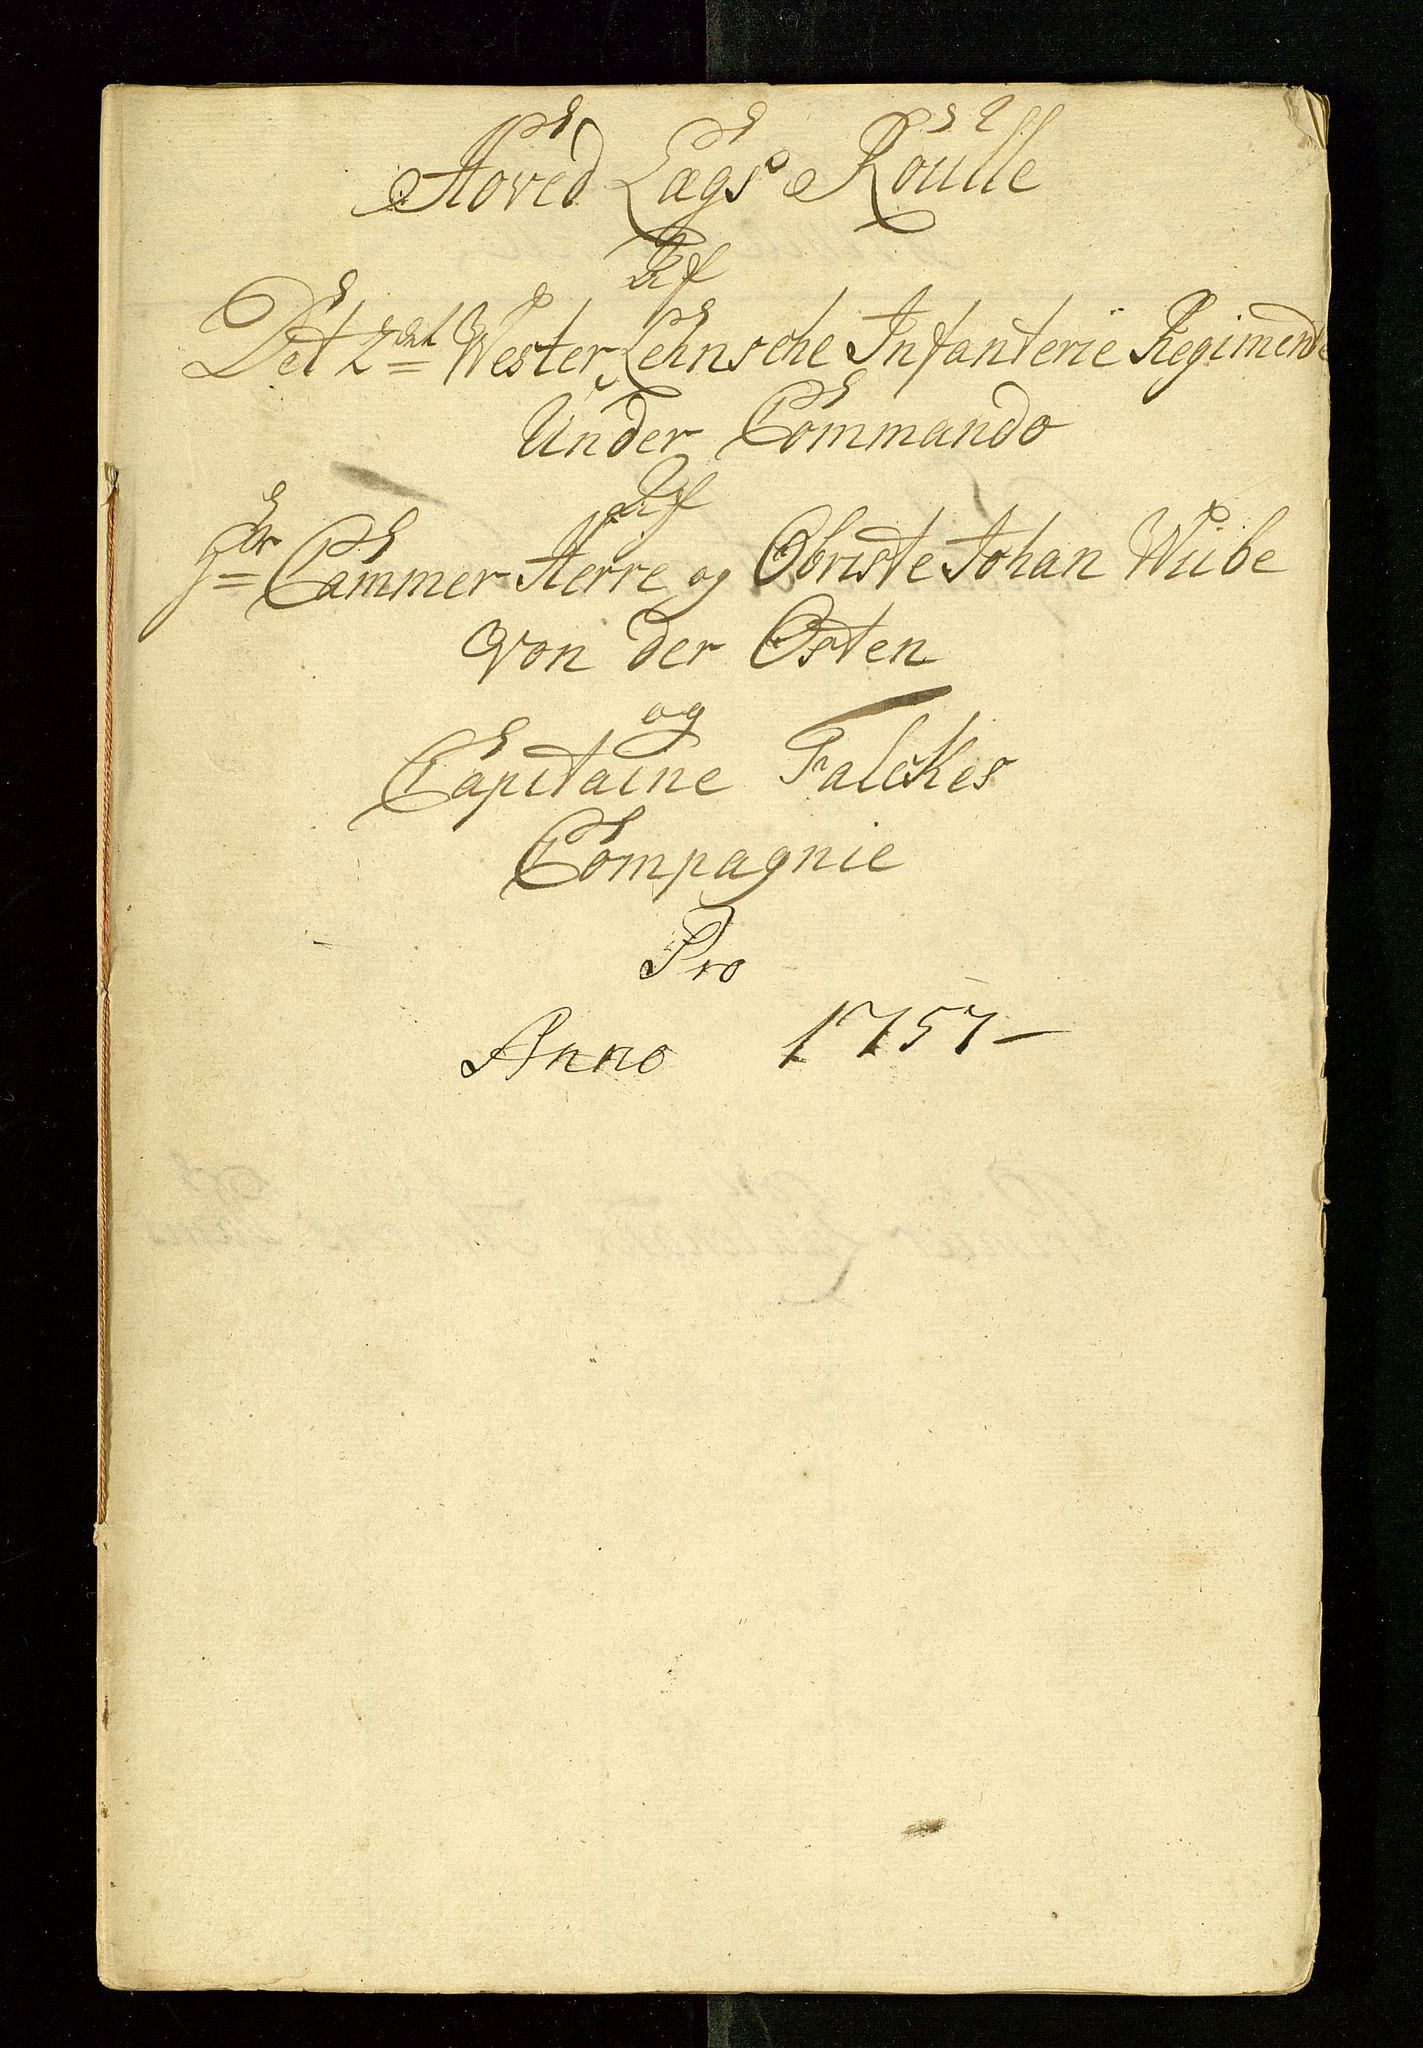 Hoved Lægs Roulle
Af
Det 2det Wester Lehnsche Infanterie Regimendt
Under Commando
Af
Hr Cammer-Herre og Obriste Johan Wübe
von der Osten
og
Capitaine Falckes
Compagnie
Pro
Anno 1757-